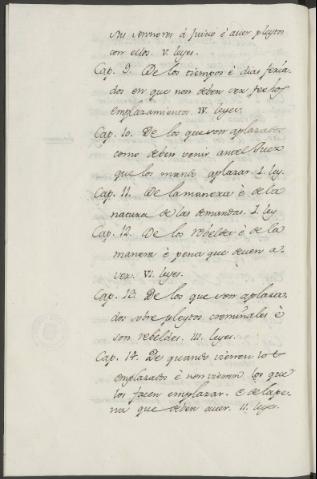 sus sennores á Juizio é auer pleytos
con ellos. V. leyes.
Cap. 9. De los tiempos é dias feria-
dos en que non deben ser fechos
emplazamientos IV. leyes.
Cap. 10. De los que son aplazados
como deben venir antel Juez
que los mandó aplazar I. ley.
Cap. 11. De la manera é de la
natura de las demandas. I. ley
Cap. 12. De los rebeldes é de la
manera é pena que deuen a-
ver. VI. leyes.
Cap. 13. De los que son aplaza-
dos sobre pleytos criminales é
son rebeldes. III. leyes.
Cap. 14. De quando vienen los
emplazados é non vienen los que
los facen emplazar. E de la pe-
na que deben auer. II. leyes.